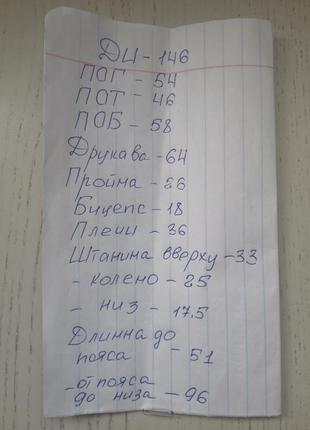 ДИ - 146
ПОГ - 54
ПОТ - 46
ПОБ - 58
Друкава - 64
Пройма - 26
Бицепс - 18
Плечи - 36
Штанина вверху - 33
- колено - 25
- низ - 17,5
Длинна до
пояса - 51
- от пояса
до низа - 96